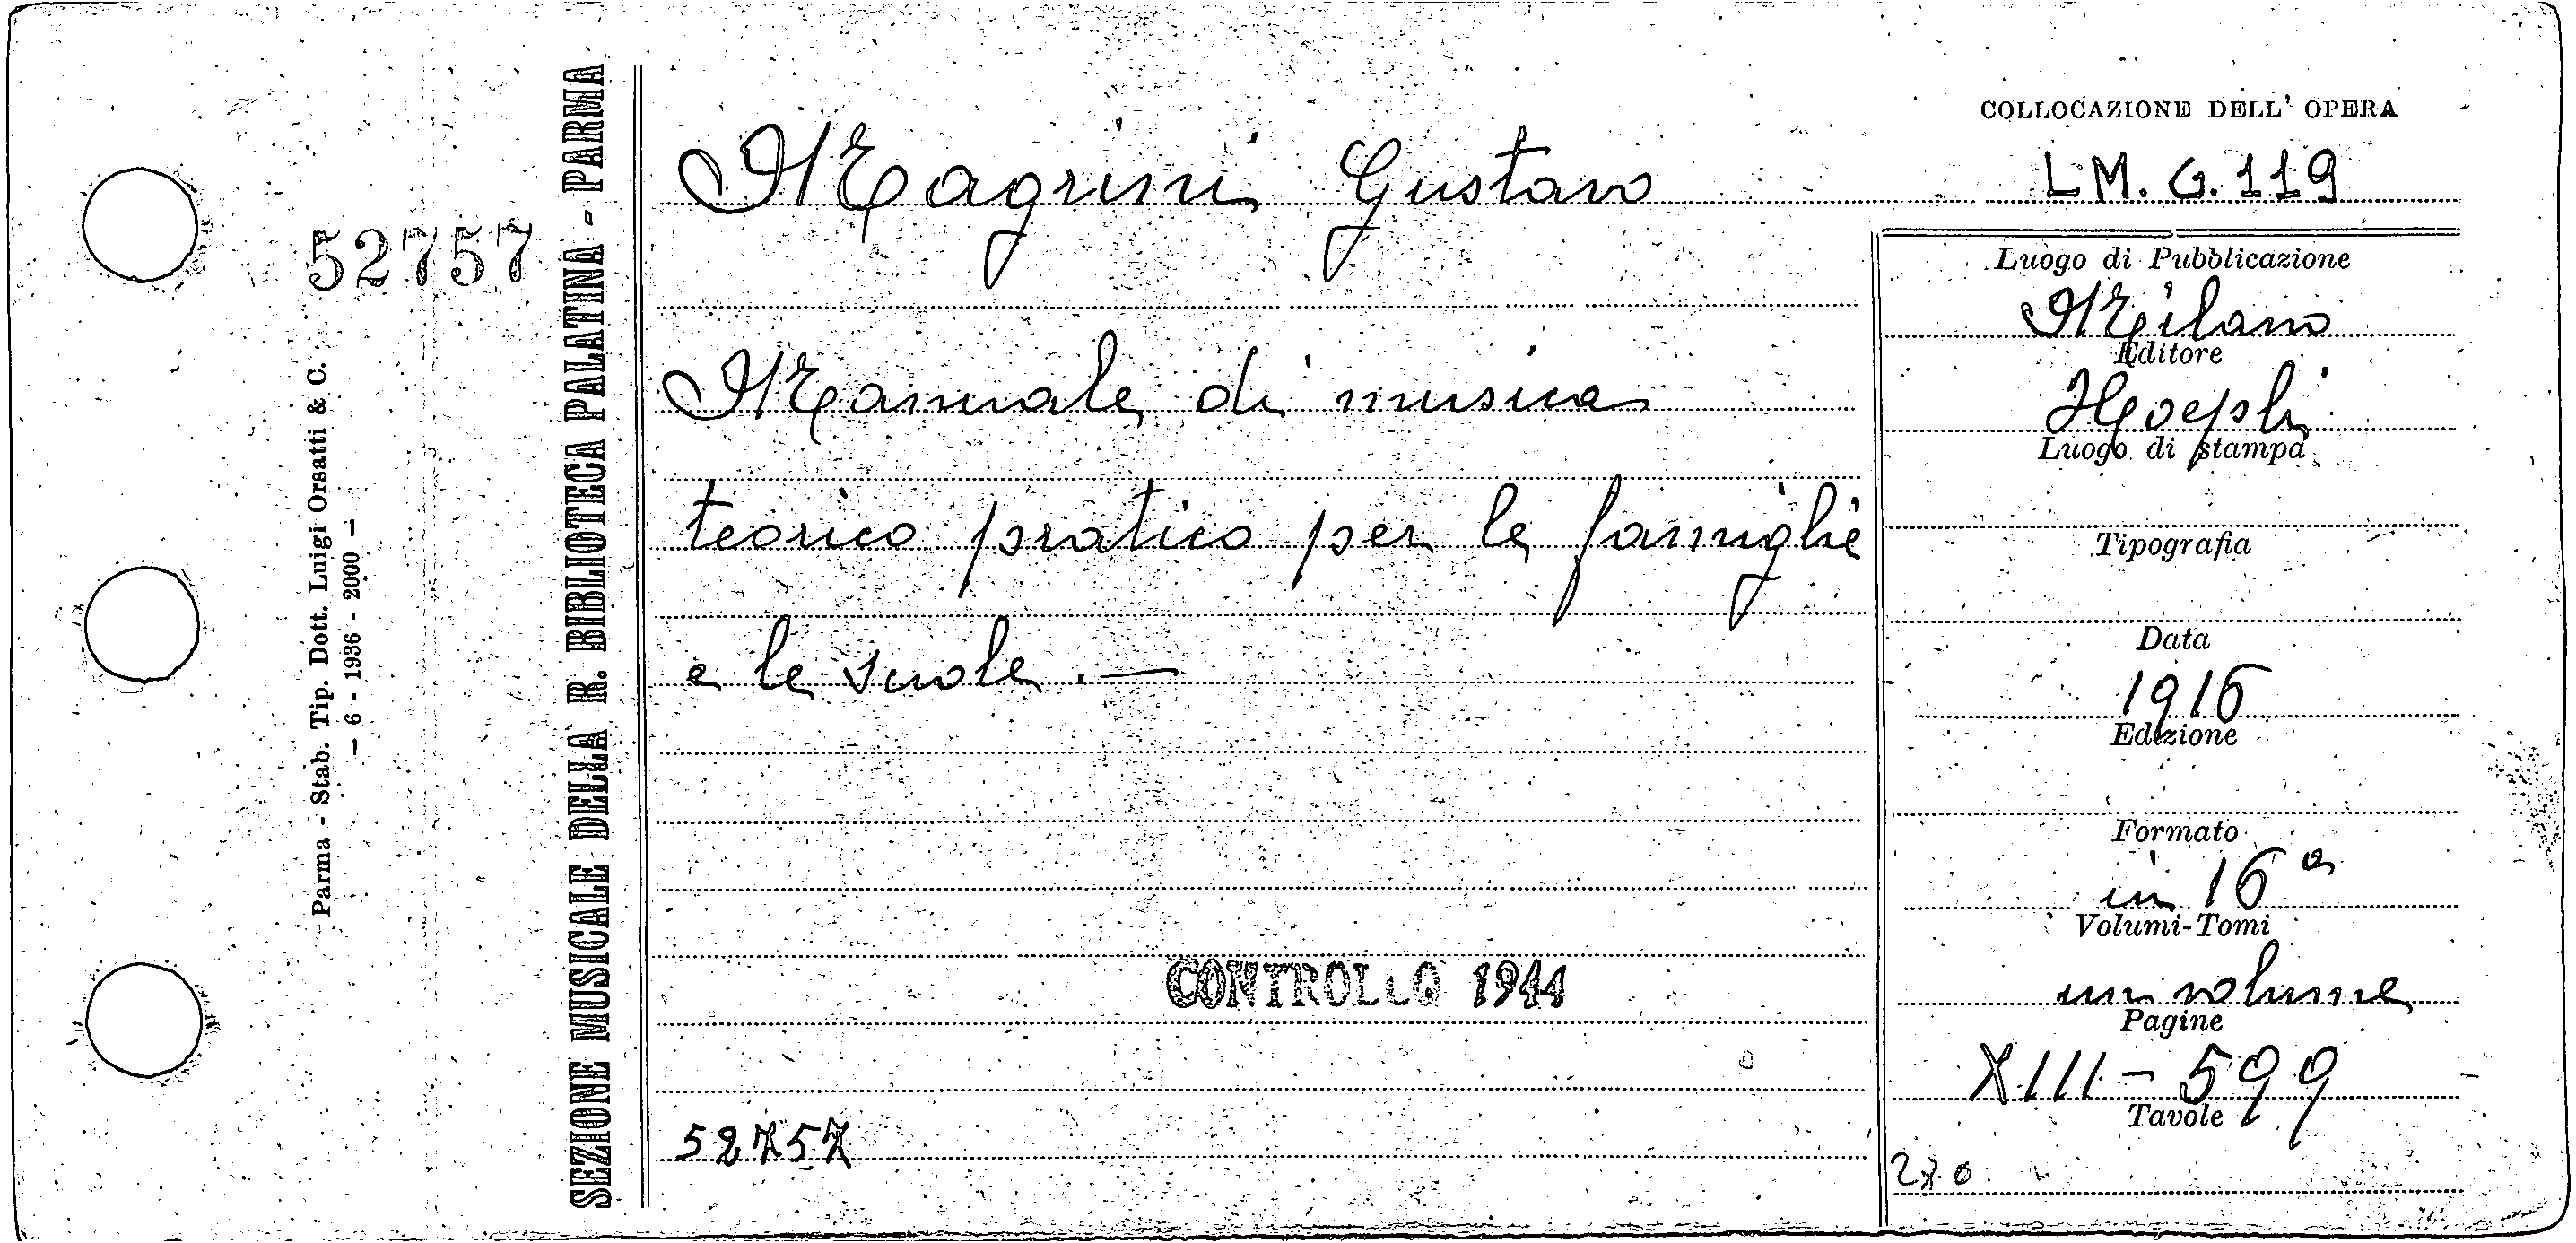 52757
Parma - Stab. Tip. Dott. Luigi Orsatti & C.
— 6 - 1936 - 2000 —
SEZIONE MUSICALE DELLA R. BIBLIOTECA PALATINA - PARMA
Magrini Gustavo
Manuale di musica
teorico pratico per le famiglie
e le scuole. —
CONTROLLO 1944
52757
COLLOCAZIONE DELL' OPERA
LM. G. 119
Luogo di Pubblicazione
Milano
Editore
Hoepli
Luogo di stampa
Tipografia
Data
1916
Edizione
Formato
in 16º
Volumi-Tomi
un volume
Pagine
XIII - 599
Tavole